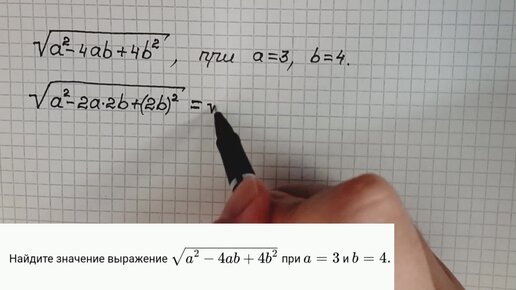 √(a² - 4ab + 4b²), при a=3, b=4.
√(a² - 2a·2b + (2b)²) = √
Найдите значение выражение √(a² − 4ab + 4b²) при a = 3 и b = 4.